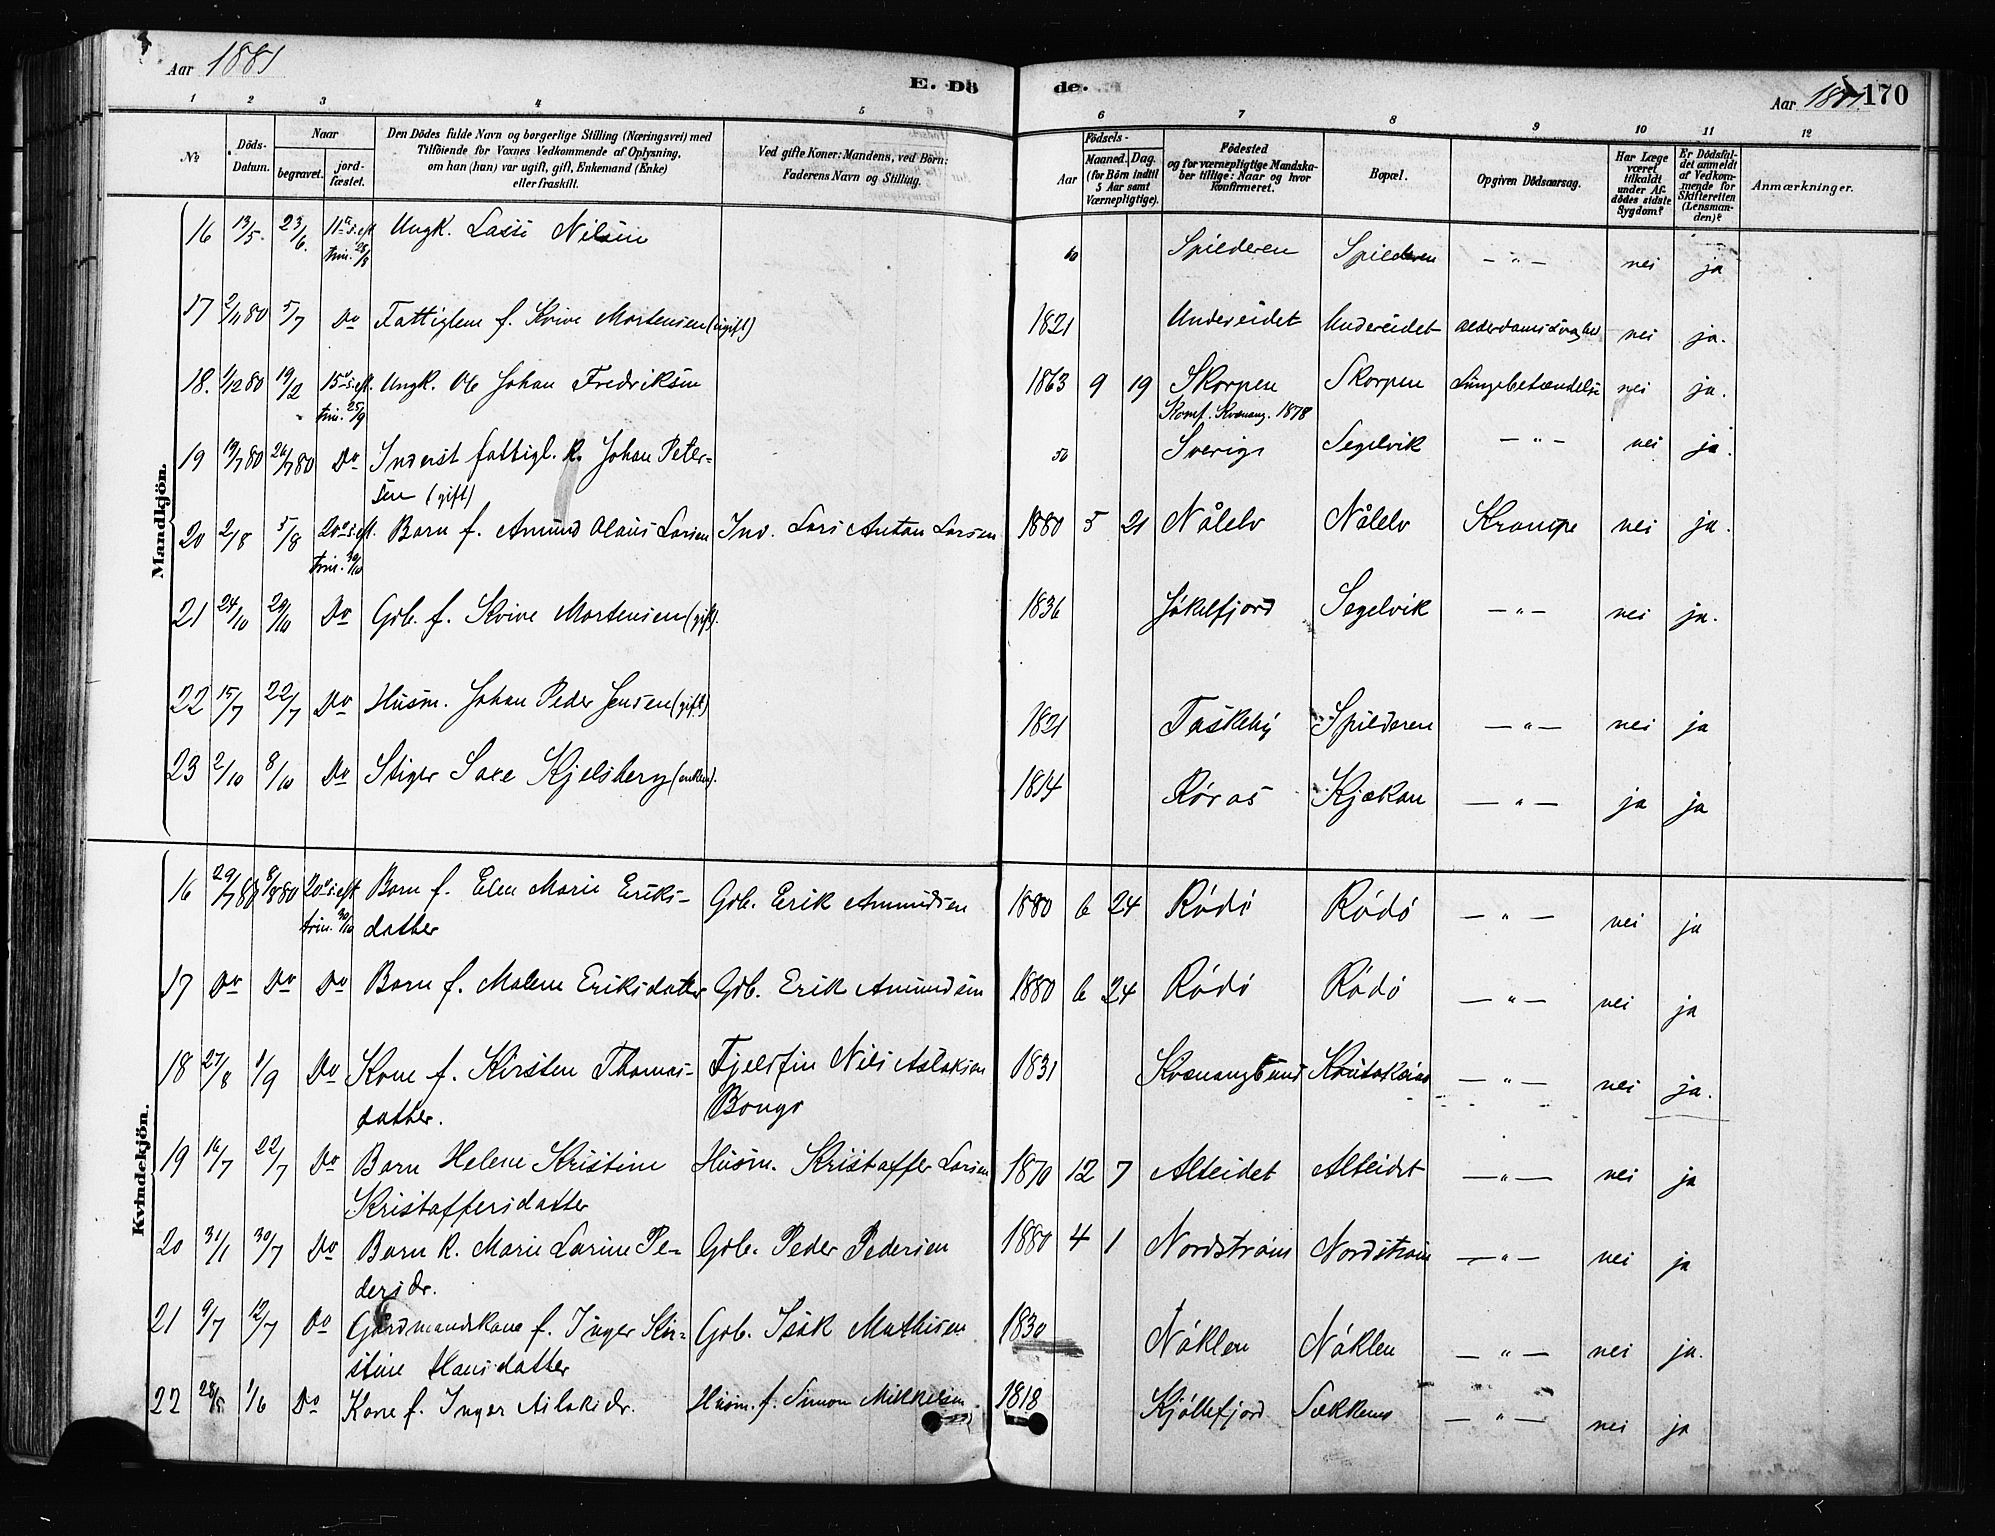 Aar 1881
E. Dö
de.
Aar 1881
170
1 2 3 4 5 6 7 8 9 10 11 12
№
Döds-
Datum.
Naar
begravet.
jord-
fæstet.
Den Dödes fulde Navn og borgerlige Stilling (Næringsvei) med
Tilföiende for Voxnes Vedkommende af Oplysning,
om han (hun) var ugift, gift, Enkemand (Enke)
eller fraskilt.
Ved gifte Koner: Mandens, ved Börn:
Faderens Navn og Stilling.
Födsels-
Aar
Maaned. Dag.
(for Börn indtil
5 Aar samt
Værnepligtige).
Födested
og for værnepligtige Mandska-
ber tillige: Naar og hvor
Konfirmeret.
Bopæl.
Opgiven Dödsaarsag.
Har Læge
været
tilkaldt
under Af-
dödes sidste
Sygdom?
Er Dödsfal-
det anmeldt
af Vedkom-
mende for
Skifteretten
(Lensman-
den)?
Anmærkninger.
Mandkjön.
16 13/5. 23/6. 11te s. eft. Ungk. Lasse Nilsen 60 Spilderen Spilderen — " — nei ja
trin. 28/8
17 2/11 80 5/7 Do Fattiglem f. Kvive Mortensen (ugift) 1821 Undereidet Undereidet Alderdomssvaghed nei ja.
18. 1/12 80 19/2 15de s. eft. Ungk. Ole Johan Fredriksen 1863 9 19 Skorpen Skorpen Lungebetændelse nei ja.
trin. 25/9 Konf. Kvænang. 1878
19 19/7 80 26/7 80 Do Inderst fattigl. k. Johan Peter- 56 Sverige Segelvik — " — nei ja.
sen (gift)
20 2/8 5/8 20de s. eft. Barn f. Amund Olaus Larsen Ind. Lars Anton Larsen 1880 5 21 Nålelv Nålelv Krampe nei ja.
trin. 30/10
21 24/10 29/10 Do Gdb. f. Kvive Mortensen (gift). 1836 Jøkelfjord Segelvik — " — nei ja.
22 15/7 22/7 Do Husm. Johan Peder Jensen (gift) 1821 Taskeby Spilderen — " — nei ja
23 2/10 8/10 Do Stiger Saxe Kjelsberg (enkem). 1814 Røros Kjækan — " — ja ja
Kvindekjön.
16 29/7 80 8/8 80 20de s. eft. Barn f. Elen Marie Eriks- Gdb. Erik Amundsen 1880 6 24 Rødø Rødø — " — nei ja
trin. 30/10 datter
17 Do Do Do Barn f. Malene Eriksdatter Gdb. Erik Amundsen 1880 6 24 Rødø Rødø — " — nei ja
18 27/8 1/9 Do Kone f. Kirsten Thomas- Fjeldfin Nils Aslaksen 1831 Kvænangsund Koutokeino — " — nei ja.
datter. Bongo
19 16/7 22/7 Do Barn Helene Kristine Husm. Kristoffer Larsen 1870 12 7 Alteidet Alteidet — " — nei ja
Kristoffersdatter
20 31/1 30/7 Do Barn k. Marie Larine Pe- Gdb. Peder Pedersen 1880 4 1 Nordstrøm Nordstrøm — " — nei ja
dersdr.
21 9/7 12/7 Do Gårdmandskone f. Inger Kir- Gdb. Isak Mathisen 1830 Nøklen Nøklen — " — nei ja.
stine Hansdatter
22 28/5 1/6 Do Kone f. Inger Aslaksdr. Husm. f. Simon Mikkelsen 1818 Kjøllefjord Sækkemo — " — nei ja